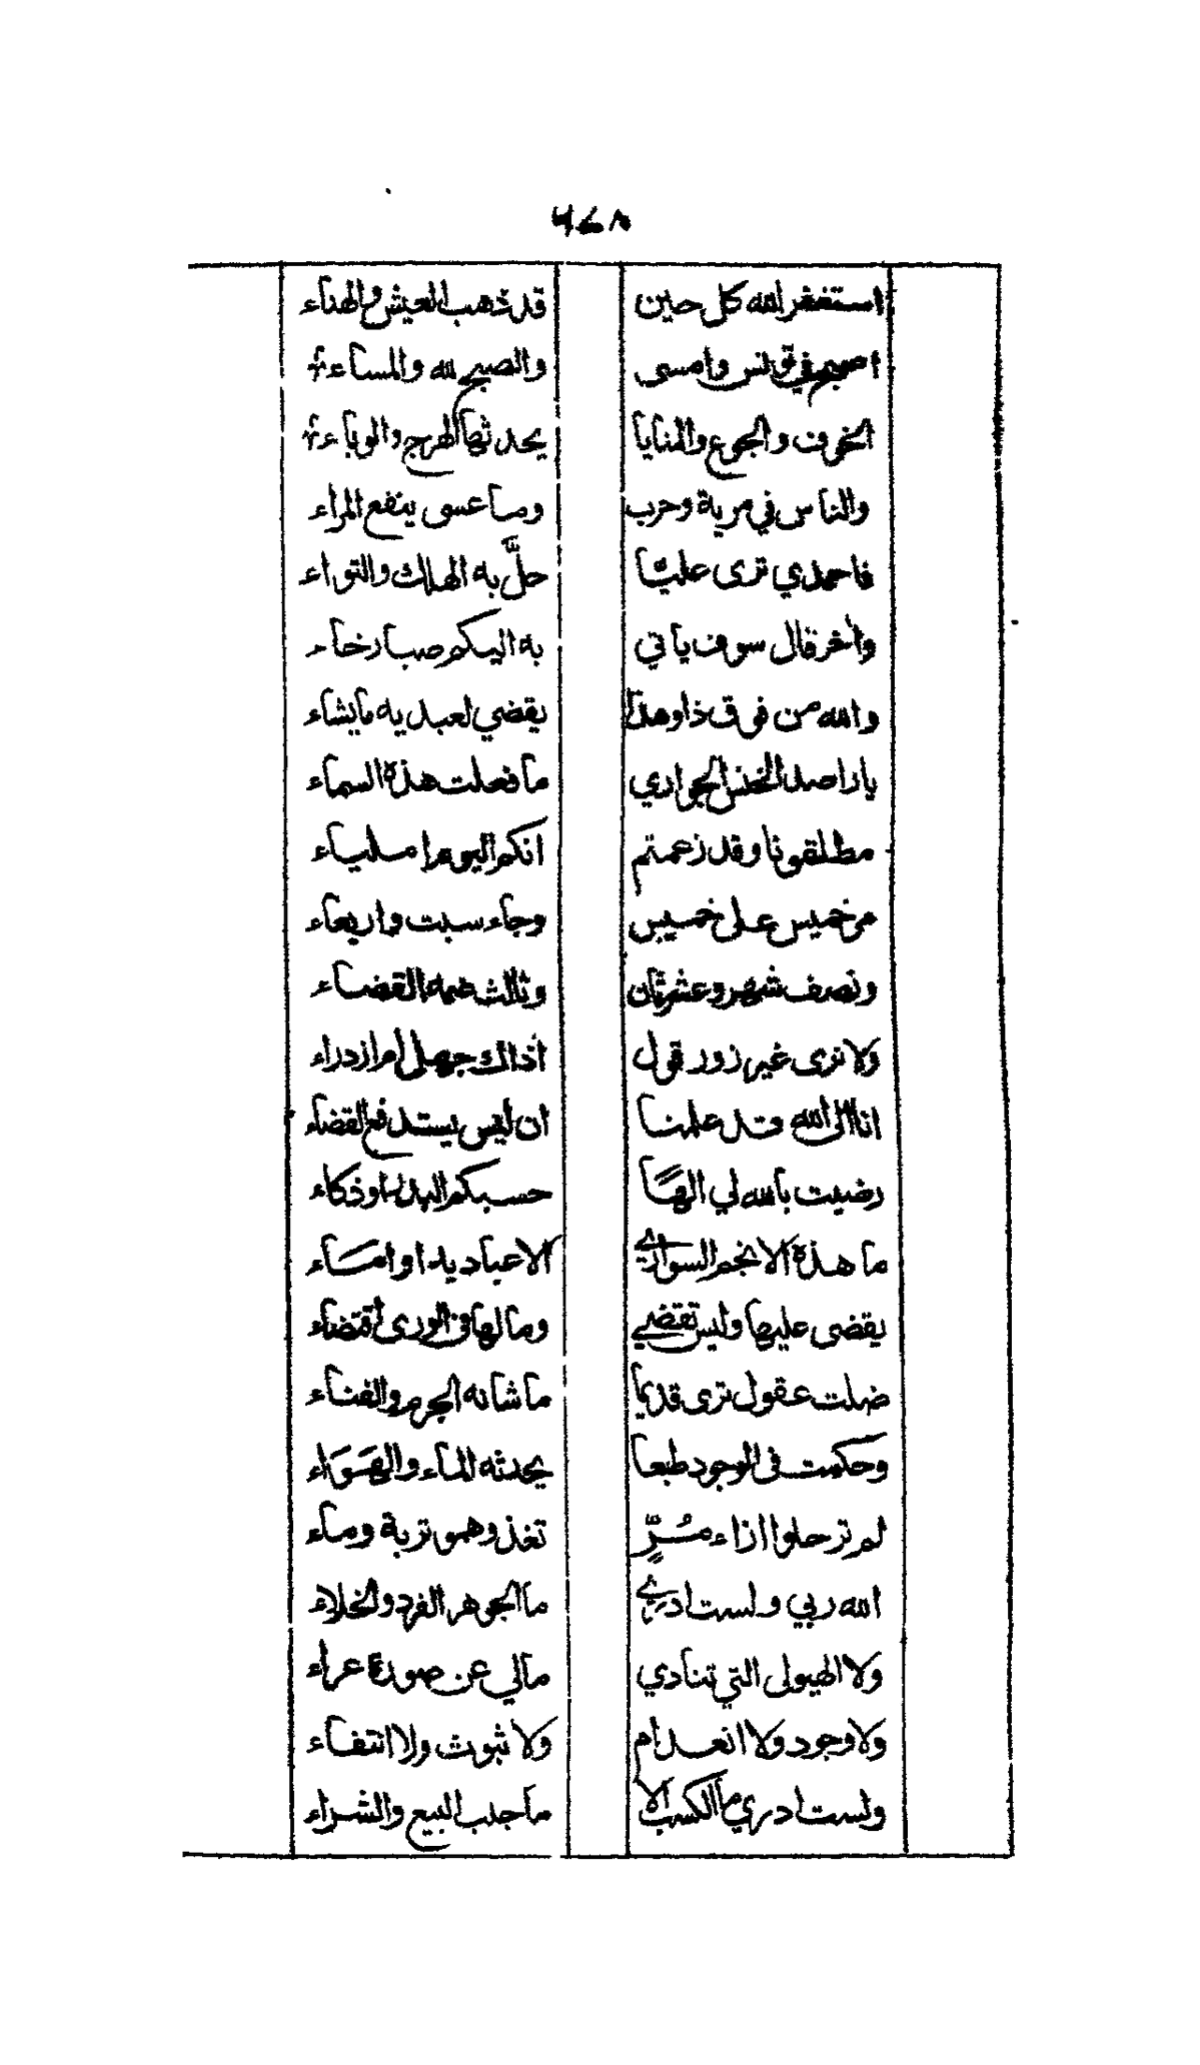 ٩٤٨
استغفر الله كل حين قد ذهب العيش والهناء
اصبح في تونس وامسى والصبح لله والمساء
الخوف والجوع والمنايا يحدثها الهرج والوباء
والناس في مرية وحرب وما عسى ينفع المراء
فاحمدي ترى عليّا حلَّ به الهلك والتواء
وآخر قال سوف ياتي به اليكم صبا رخاء
والله من فوق ذا وهذا يقضي لعبديه ما يشاء
يا راصد الخنس الجواري ما فعلت هذه السماء
مطلقونا وقد زعمتم انكم اليوم املياء
مر خميس على خميس وجاء سبت واربعاء
ونصف شهر وعشر ثان وثالث ضمه القضاء
ولا نرى غير زور قول اذاك جهل ام ازدراء
انا الى الله قد علمنا ان ليس يستدفع القضاء
رضيت بالله لي الهًا حسبكم البدر او ذكاء
ما هذه الانجم السواري الا عباديد او اماء
يقضى عليها وليس تقضي وما لها في الورى اقتضاء
ضلت عقول ترى قديما ما شانه الجرم والفناء
وحكمت في الوجود طبعا يحدثه الماء والهواء
لم تر حلوا ازاء مُرٍّ تغذوهمو تربة وماء
الله ربي ولست ادري ما الجوهر الفرد والخلاء
ولا الهيولى التي تنادي مالي عن صورة عراء
ولا وجود ولا انعدام ولا ثبوت ولا انتفاء
ولست ادري ما الكسب الا ما جلب البيع والشراء